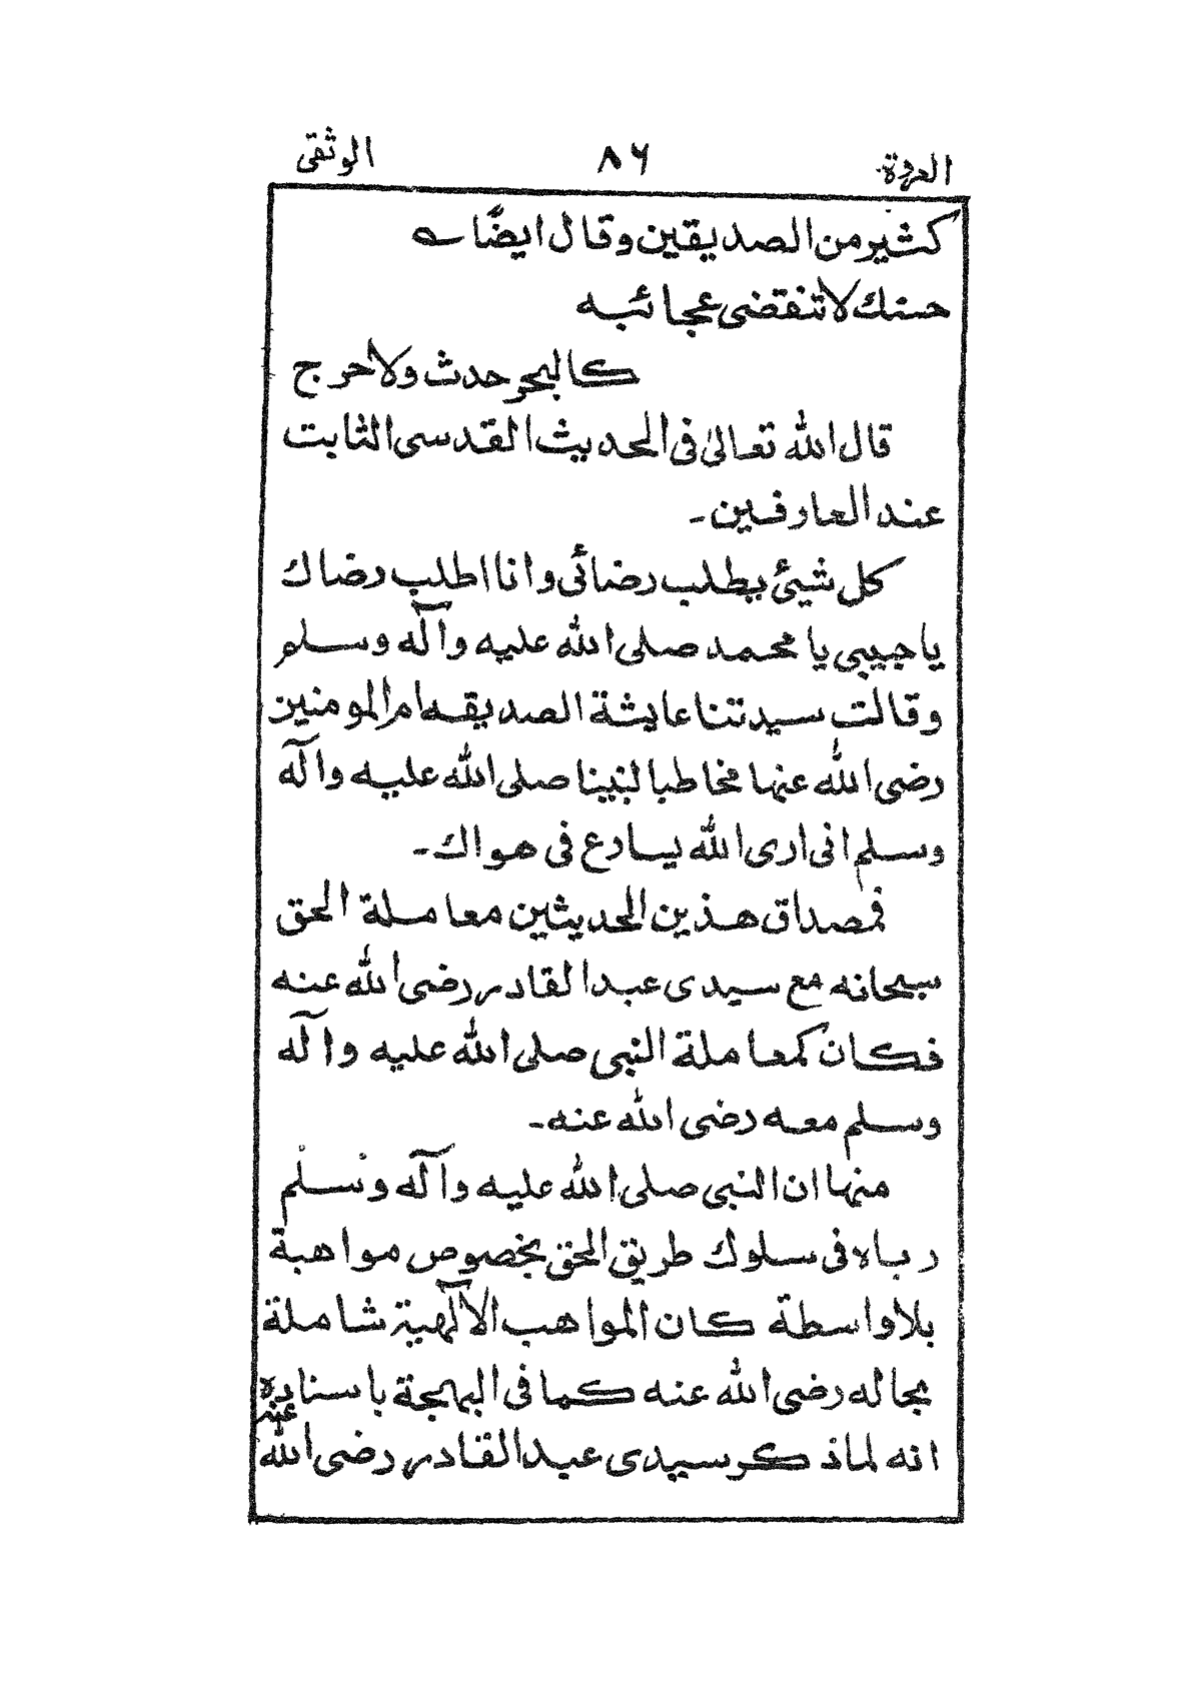 العروة ٨٦ الوثقى
كثير من الصديقين وقال ايضًا ــه
حسنك لا تنقضى عجائبه
كالبحر حدث ولا حرج
قال الله تعالىٰ فى الحديث القدسى الثابت
عند العارفين۔
كل شيئ يطلب رضائى وانا اطلب رضاك
يا حبيبى يا محمد صلى الله عليه وآله وسلم
وقالت سيدتنا عايشة الصديقه ام المومنين
رضى الله عنها مخاطبا لنبينا صلى الله عليه وآله
وسلم انى ارى الله يسارع فى هواك۔
فمصداق هذين الحديثين معاملة الحق
سبحانه مع سيدى عبد القادر رضى الله عنه
فكان كمعاملة النبى صلى الله عليه وآله
وسلم معه رضى الله عنه۔
منها ان النبى صلى الله عليه وآله وسلم
رباه فى سلوك طريق الحق بخصوص مواهبة
بلا واسطة كان المواهب الآلهية شاملة
بحاله رضى الله عنه كما فى البهجة باسناده
انه لما ذكر سيدى عبد القادر رضى الله عنه